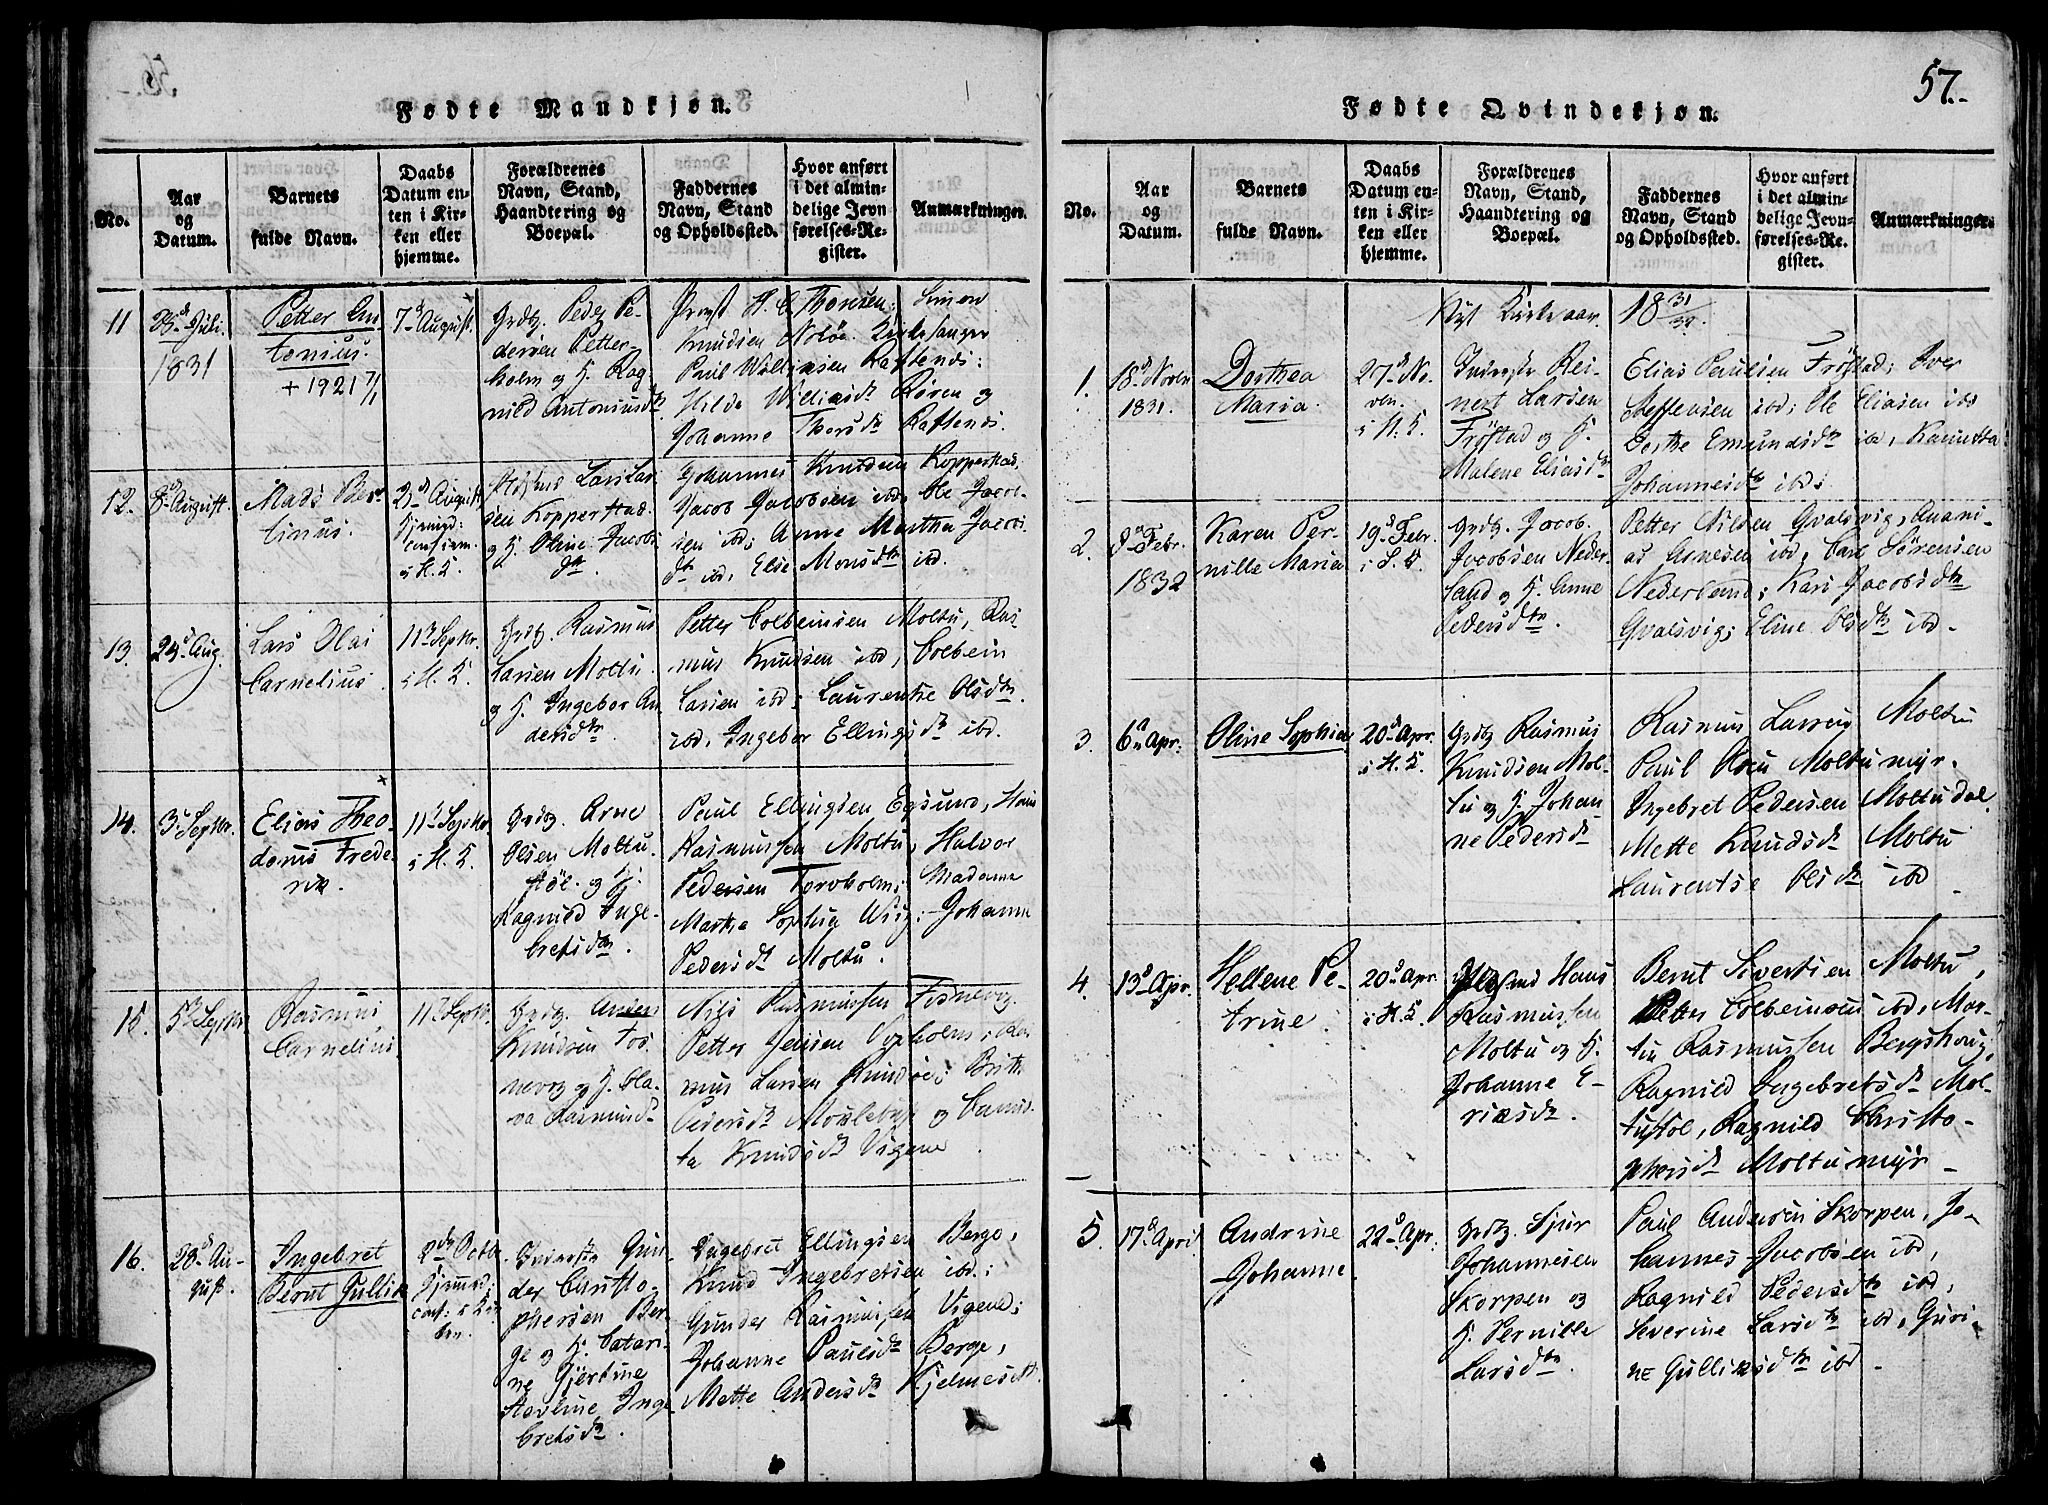 Fødte Mandkjøn.
No.
Aar
og
Datum.
Barnets
fulde Navn.
Daabs
Datum en-
ten i Kir-
ken eller
hjemme.
Forældrenes
Navn, Stand,
Haandtering og
Boepæl.
Faddernes
Navn, Stand
og Opholdssted.
Hvor anført
i det almin-
delige Jevn
førelses-Re-
gister.
Anmærkninger.
11
1831
Petter An-
tonius.
+ 1921 7/1
7d August.
Grdbr. Peder Pe-
dersen Petter-
holm og H. Rag-
nild Antoniusdtr
Provst H. C. Thoresen; Simon
Knudsen Notøe. Kirkesanger
Paul Williksen
Johanne Thorsdtr
12.
8d August.
Mads Ber-
tinus.
21d August
hjemmed:
conf
i H. K.
Lars Lar-
sen Kopperstad
og H. Oline Jacobs
dtr.
Johannes Knudsen Kopperstad,
Jacob Jacobsen ibd, Ole Jacob-
sen ibd; Anne Martha Jacobs
dtr ibd, Else Monsdtr ibd.
13.
Aug.
Lars Olai
Cornelius.
11te Septbr.
i H. K.
Grdbr. Rasmus
Larsen Moltu
og H. Ingebor An-
dersdtr
Petter Colbeinsen Moltu, Ras-
mus Knudsen ibd, Colbein
Larsen ibd; Laurentse Olsdtr.
ibd, Ingebor Ellingsdtr ibd.
14.
3d Septbr.
Elias Theo-
dorus Frede-
rik.
11te Septbr
i H. K.
Grdbr. Arne
Olsen Moltu-
støl. og H.
Ragnild Inge-
bretsdtr.
Paul Ellingsen Egsund, Hans
Rasmussen Moltu, Halvor
Pedersen Torvholm; Madame
Marthe Sophia Wiig; Johanne
Pedersdtr Moltu.
15.
5te Septbr
Rasmus
Cornelius.
11te Septbr.
Grdbr. Anders
Knudsen Fos-
nevog og H. Ola-
va Rasmusdtr
Nils Rasmussen Fosnevog.
Petter Jensen Vogholm; Ras-
mus Larsen
Pedersdtr
ta Knudsdtr Vigene
16.
28d Au-
gust.
Ingebret
Bernt Gullik
2den Octbr.
hjemmed;
Gun-
der Christo-
phersen Ber-
ge og H. Catari-
ne Gjertine
Severine Inge-
bretsdtr.
Ingebret Ellingsen Berge,
Knud Ingebretsen ibd.;
Gunder Rasmussen Vigene;
Johanne Paulsdtr Berge,
Mette Andersdtr
57.-
Fødte Qvindekjøn.
No.
Aar
og
Datum.
Barnets
fulde Navn.
Daabs
Datum en-
ten i Kir-
ken eller
hjemme.
Forældrenes
Navn, Stand,
Haandtering og
Boepæl.
Faddernes
Navn, Stand
og Opholdssted.
Hvor anført
i det almin-
delige Jevn-
førelses-Re.
gister.
Anmærkninger.
Nyt Kirkeaar. 18 31/32.
1.
18d Novbr
1831.
Dorthea
Maria.
27d No-
ven.
i H. K.
Rei-
nert Larsen
Frøstad og H.
Malene Eliasdtr
Elias Paulsen Frøstad; Iver
Steffensen ibd; Ole Eliasen ibd
Dorthe Emundsdtr ibd,
Johannesdtr ibd;
2.
Febr.
1832
Karen Per-
nille Maria
19d Febr.
Grdbr. Jacob
Jacobsen Neder-
land og H. Anne
Pedersdtr.
Petter Nilsen Qvalsvig, Anani-
as Arnesen ibd, Carl Sørensen
Nederland; Kari Jacobsdtr
Qvalsvig; Eline Olsdtr ibd-
3.
6d Apr:
Oline Sophia
20d Apr.
i H. K.
Grdbr Rasmus
Knudsen Mol-
tu og H. Johan-
ne Pedersdtr
Rasmus Larsen Moltu
Paul Moltumyr.
Ingebret Pedersen Moltudal
Mette Knudsdtr Moltu
Laurentse Olsdtr ibd -
4.
13d Apr.
Hellene Pe-
trine.
20d Apr
i H. K.
Hans
Rasmussen
Moltu og H.
Johanne E-
riksdtr.
Bernt Sivertsen Moltu,
Petter Colbeinsen ibd, Mar-
tin Rasmussen Bergshoug,
Ragnild Ingebretsdtr Mol-
tustøl, Ragnild Christo-
phersdtr Moltumyr -
5.
17d April
Andrine
Johanne
22d Apr.
Grdbr. Sjur
Johannesen
Skorpen og
H. Pernille
Larsdtr.
Paul Andersen Skorpen, Jo-
hannes Jacobsen ibd,
Ragnild Pedersdtr ibd,
Severine Larsdtr ibd, Guri-
ne Gulliksdtr ibd -